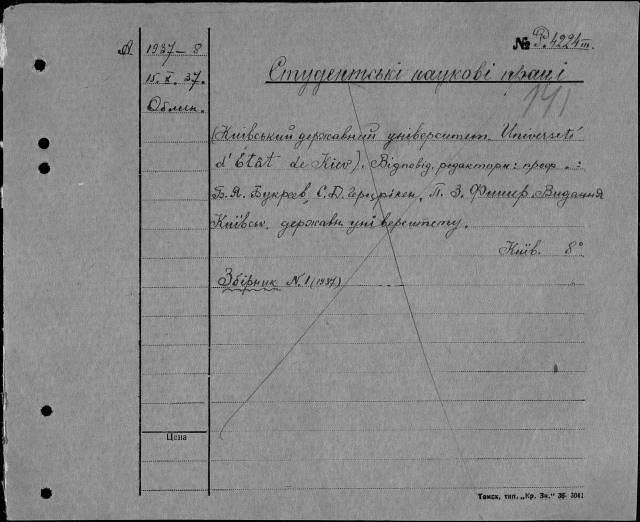 № P. 4224 III.
A 1937-8
15. X. 37.
Облик.
Студентські наукові праці
141
(Київський державний університет. Université
d'État de Kiev). Відповід. редактори: проф.:
Б. Я. Букреев, С. Д. П. З. Фишер. Видання
Київськ. державн. університету.
Київ. 8°
Збірник N. 1 (1937)
Цена
Томск, тип. „Кр. Зн." 36- 3041